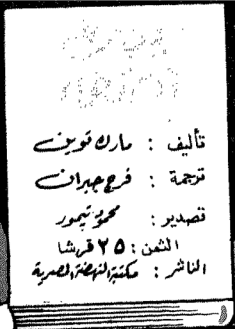 تأليف : مارك توين
ترجمة : فرج جبران
تصدير : محمود تيمور
الثمن : ٢٥ قرشا
الناشر : مكتبة النهضة المصرية